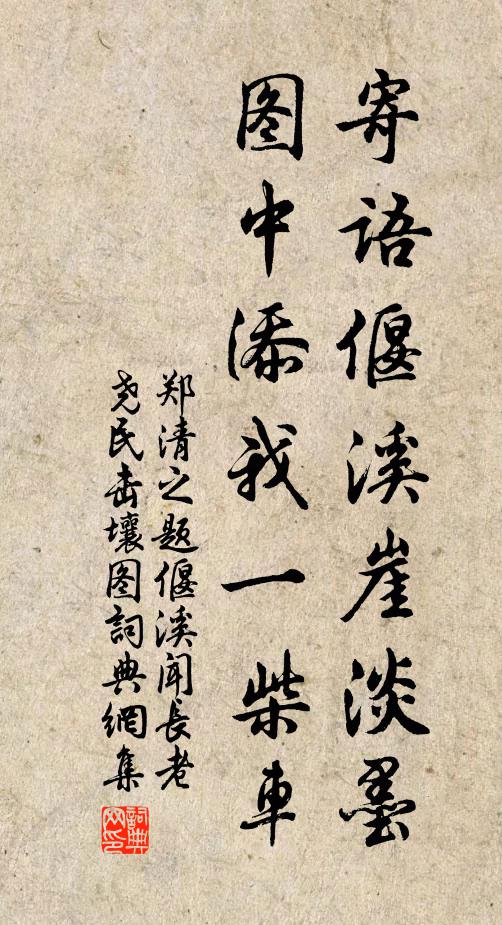 寄语偃溪崖淡墨
图中添我一柴車
郑清之题偃溪闻長老
尧民击壤图詞典網集
詞典网印